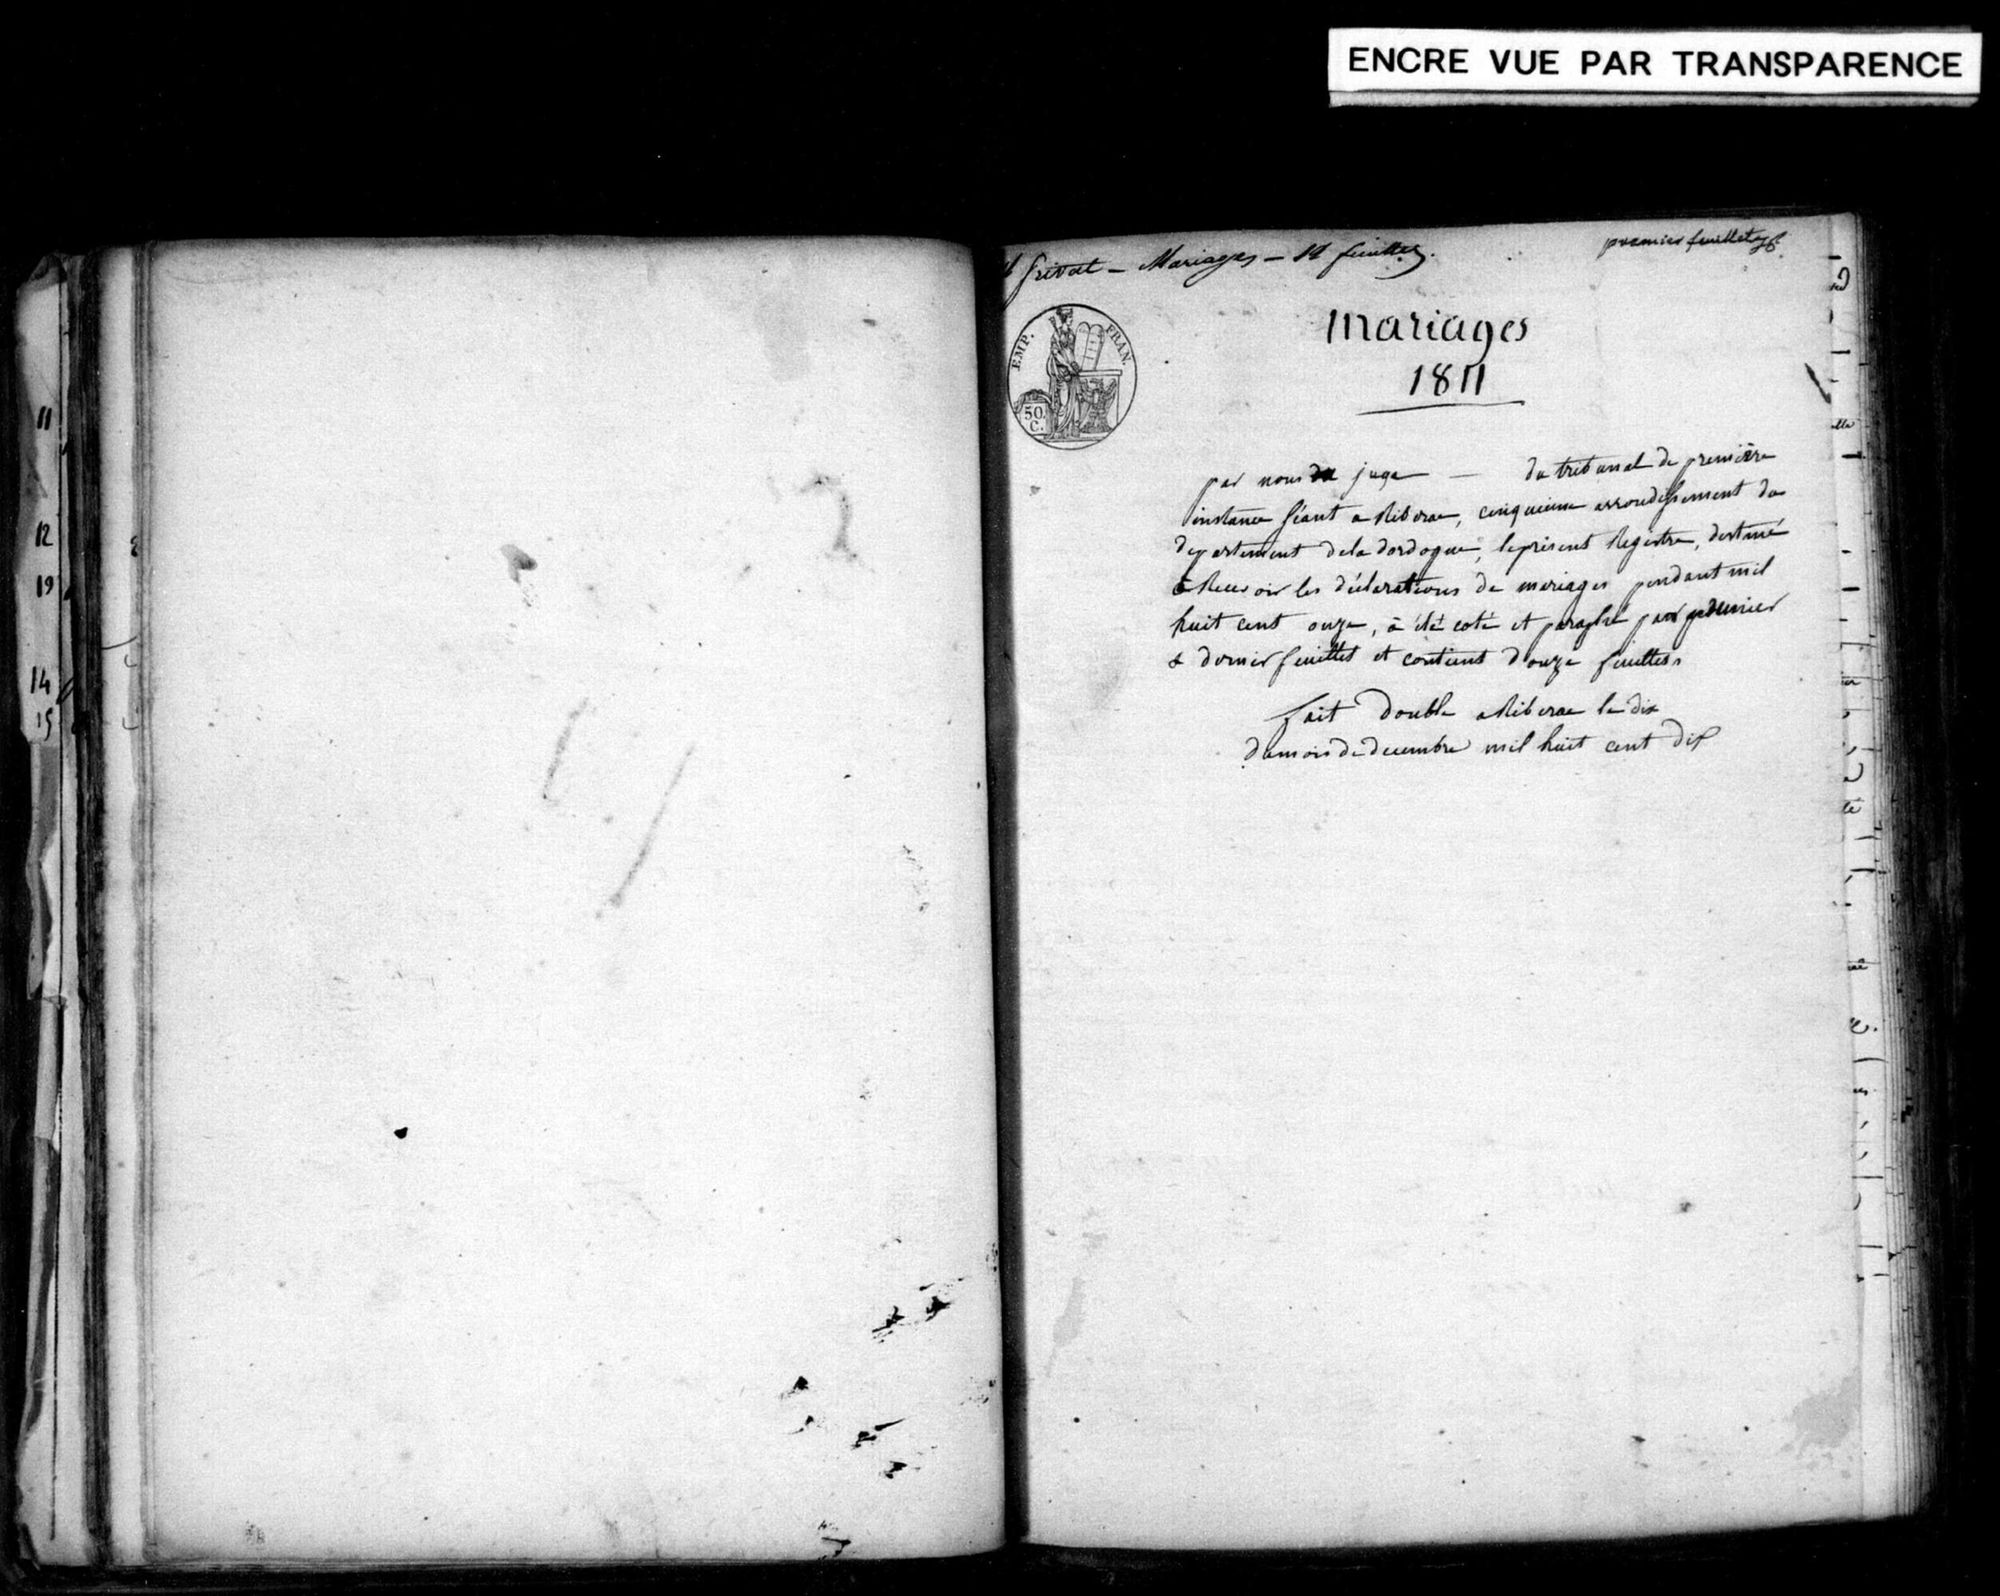 ENCRE VUE PAR TRANSPARENCE
11
12
19
14
15
premier feuillet
Grival - Mariages - 12 feuillets.
EMP. FRAN.
50 C.
Mariages
1811
par nous juge — du tribunal de première
instance séant a Riberac, cinquieme arrondissement du
departement dela dordogne, leprésent Registre, destiné
à Recevoir les déclarations de mariages pendant mil
huit cent onze, à été coté et paraphé par premier
& dernier feuillet et contient douze feuillets
fait double a Riberac le dix
dumois de decembre mil huit cent dix